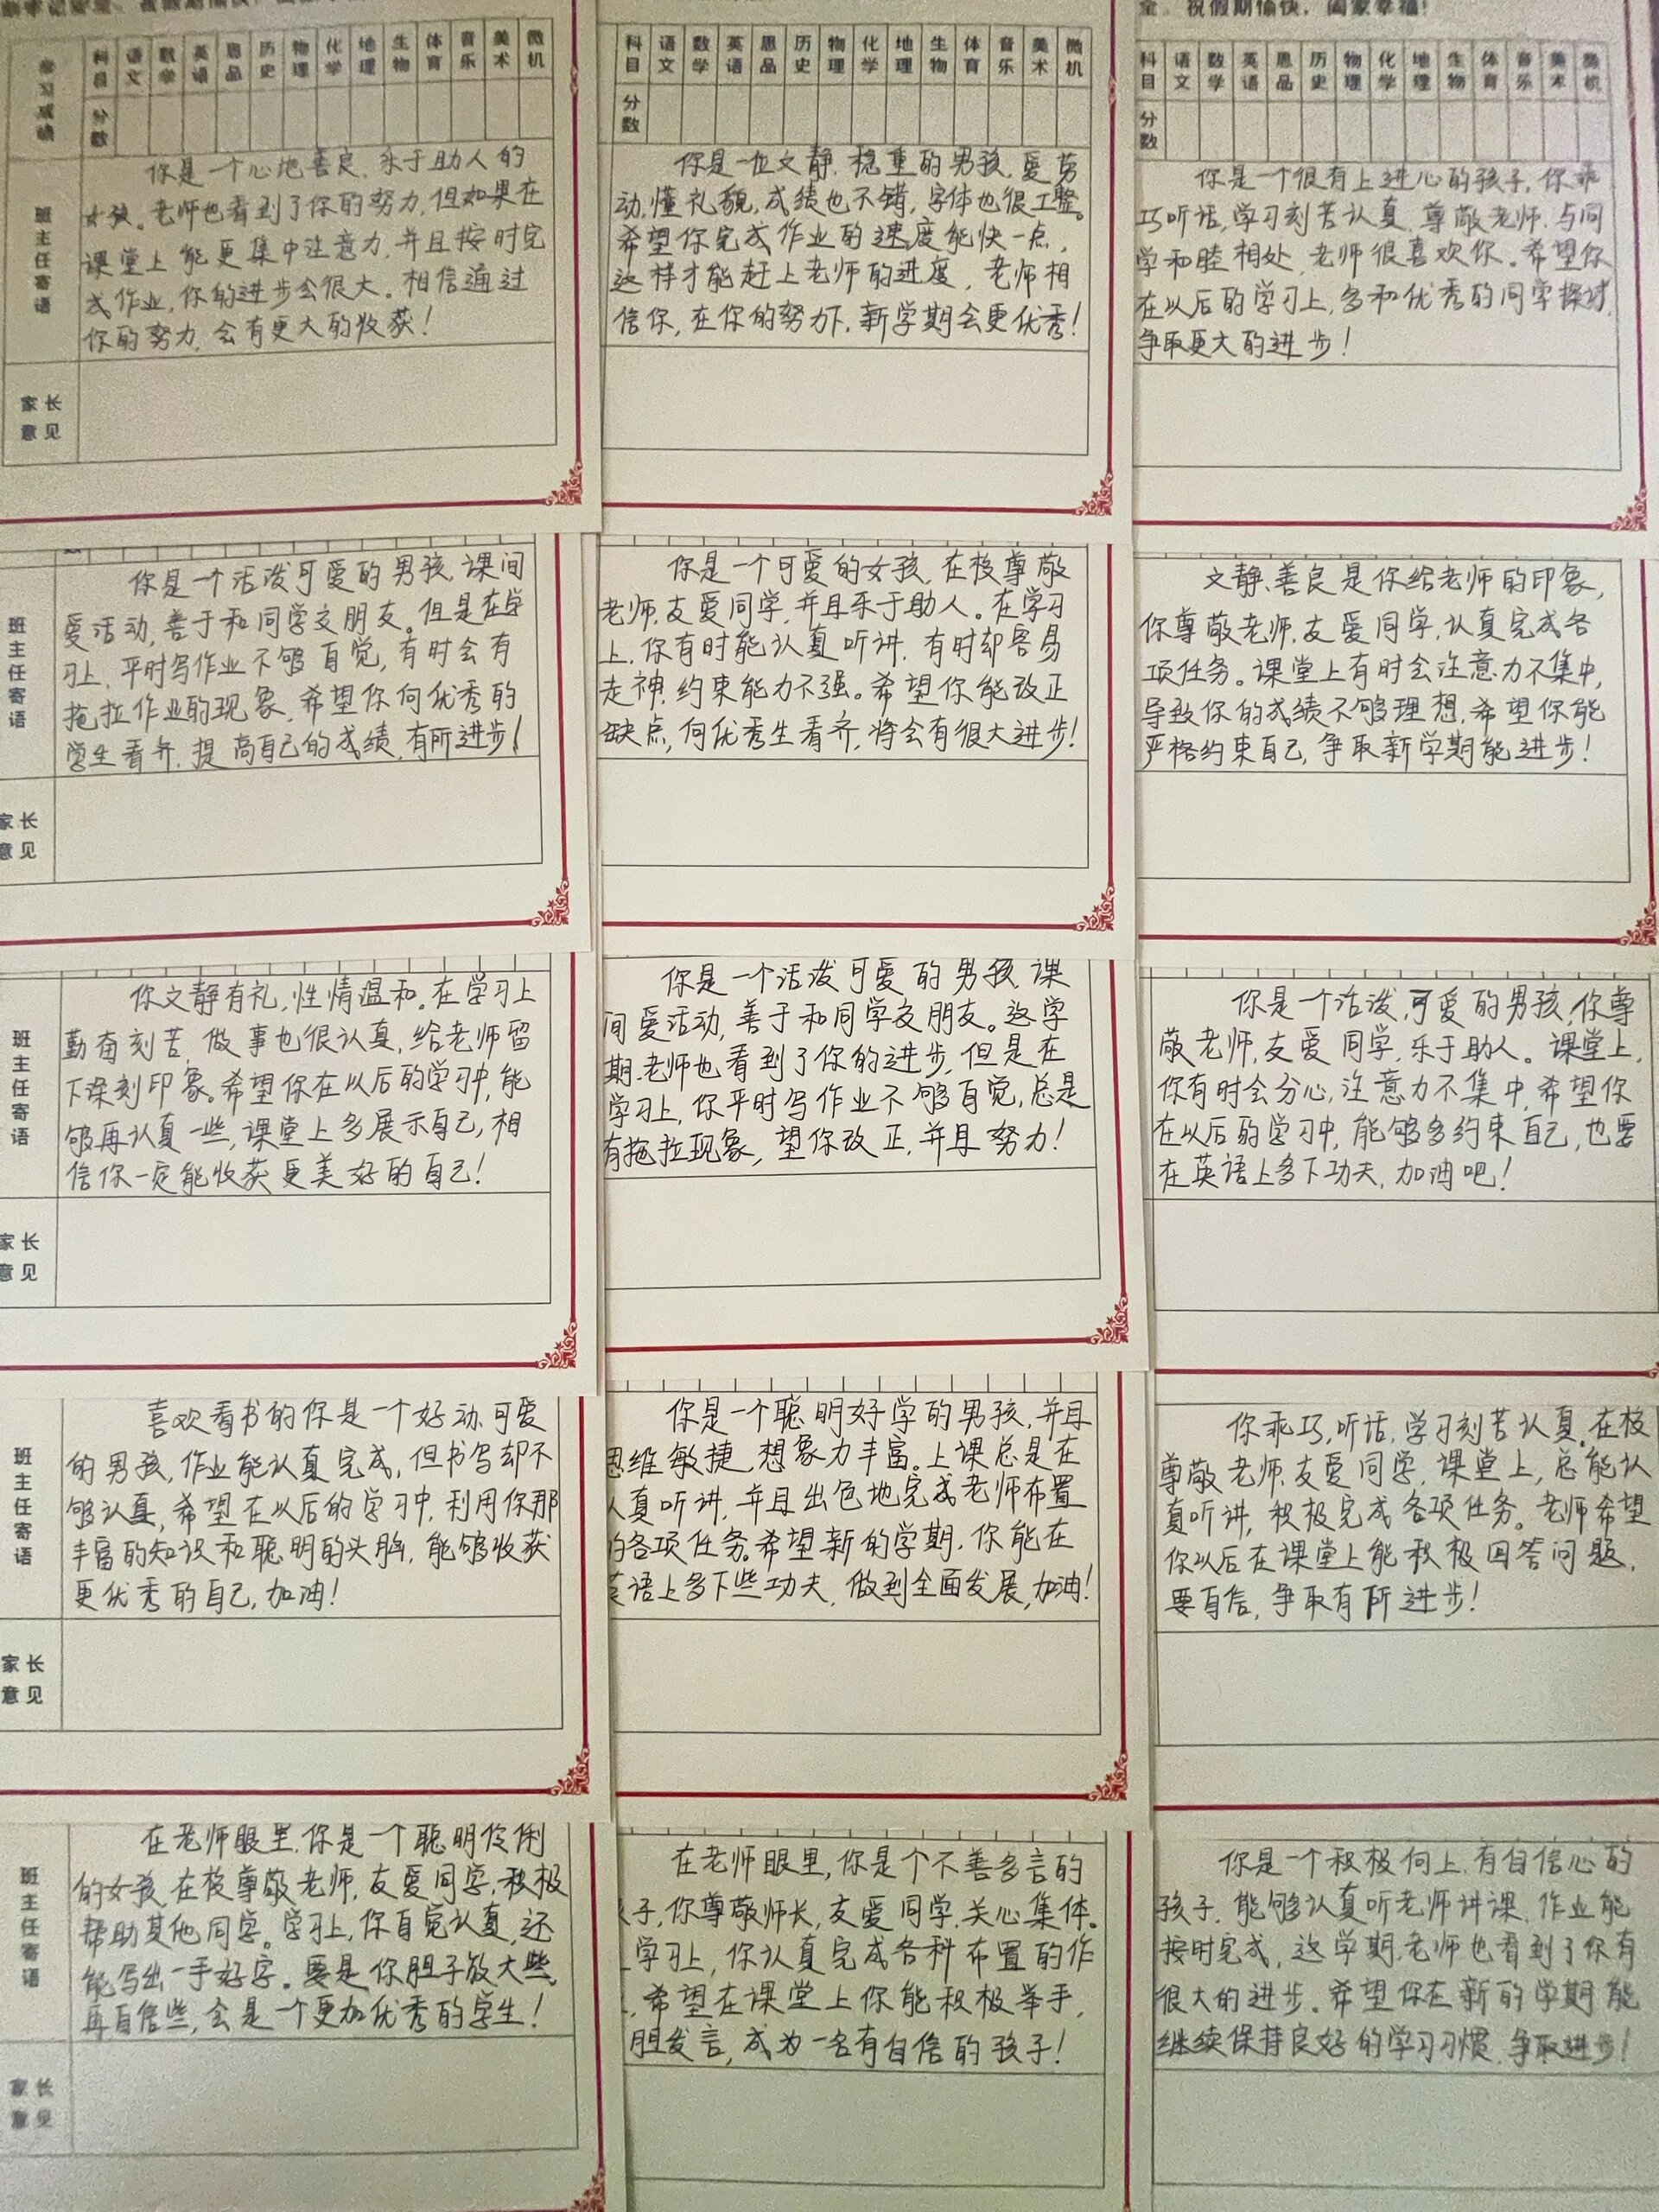 全。祝假期愉快，阖家幸福！
学习成绩
科目 语文 数学 英语 思品 历史 物理 化学 地理 生物 体育 音乐 美术 微机
分数
班主任寄语
你是一个心地善良、乐于助人的
女孩。老师也看到了你的努力，但如果在
课堂上能更集中注意力，并且按时完
成作业，你的进步会很大。相信通过
你的努力，会有更大的收获！
家长意见
科目 语文 数学 英语 思品 历史 物理 化学 地理 生物 体育 音乐 美术 微机
分数
你是一位文静、稳重的男孩，爱劳
动，懂礼貌，成绩也不错，字体也很工整。
希望你完成作业的速度能快一点，
这样才能赶上老师的进度，老师相
信你，在你的努力下，新学期会更优秀！
科目 语文 数学 英语 思品 历史 物理 化学 地理 生物 体育 音乐 美术 微机
分数
你是一个很有上进心的孩子，你乖
巧听话，学习刻苦认真，尊敬老师，与同
学和睦相处，老师很喜欢你。希望你
在以后的学习上，多和优秀的同学探讨，
争取更大的进步！
班主任寄语
你是一个活泼可爱的男孩，课间
爱活动，善于和同学交朋友。但是在学
习上，平时写作业不够自觉，有时会有
拖拉作业的现象，希望你向优秀的
学生看齐，提高自己的成绩，有所进步！
家长意见
你是一个可爱的女孩，在校尊敬
老师，友爱同学，并且乐于助人。在学习
上，你有时能认真听讲，有时却容易
走神，约束能力不强。希望你能改正
缺点，向优秀生看齐，将会有很大进步！
文静、善良是你给老师的印象，
你尊敬老师，友爱同学，认真完成各
项任务。课堂上有时会注意力不集中，
导致你的成绩不够理想，希望你能
严格约束自己，争取新学期能进步！
班主任寄语
你文静有礼，性情温和。在学习上
勤奋刻苦，做事也很认真，给老师留
下深刻印象。希望你在以后的学习中，能
够再认真一些，课堂上多展示自己，相
信你一定能收获更美好的自己！
家长意见
你是一个活泼可爱的男孩，课
间爱活动，善于和同学交朋友。这学
期，老师也看到了你的进步，但是在
学习上，你平时写作业不够自觉，总是
有拖拉现象，望你改正，并且努力！
你是一个活泼，可爱的男孩，你尊
敬老师，友爱同学，乐于助人。课堂上，
你有时会分心，注意力不集中，希望你
在以后的学习中，能够多约束自己，也要
在英语上多下功夫，加油吧！
班主任寄语
喜欢看书的你是一个好动、可爱
的男孩，作业能认真完成，但书写却不
够认真，希望在以后的学习中，利用你那
丰富的知识和聪明的头脑，能够收获
更优秀的自己，加油！
家长意见
你是一个聪明好学的男孩，并且
思维敏捷，想象力丰富。上课总是在
认真听讲，并且出色地完成老师布置
的各项任务。希望新的学期，你能在
英语上多下些功夫，做到全面发展，加油！
你乖巧，听话，学习刻苦认真，在校
尊敬老师，友爱同学，课堂上，总能认
真听讲，积极完成各项任务。老师希望
你以后在课堂上能积极回答问题，
要自信，争取有所进步！
班主任寄语
在老师眼里，你是一个聪明伶俐
的女孩，在校尊敬老师，友爱同学，积极
帮助其他同学。学习上，你自觉认真，还
能写出一手好字。要是你胆子放大些，
再自信些，会是一个更加优秀的学生！
家长意见
在老师眼里，你是个不善多言的
子，你尊敬师长，友爱同学，关心集体。
学习上，你认真完成各科布置的作
，希望在课堂上你能积极举手，
胆发言，成为一名有自信的孩子！
你是一个积极向上，有自信心的
孩子，能够认真听老师讲课，作业能
按时完成，这学期，老师也看到了你有
很大的进步。希望你在新的学期能
继续保持良好的学习习惯，争取进步！